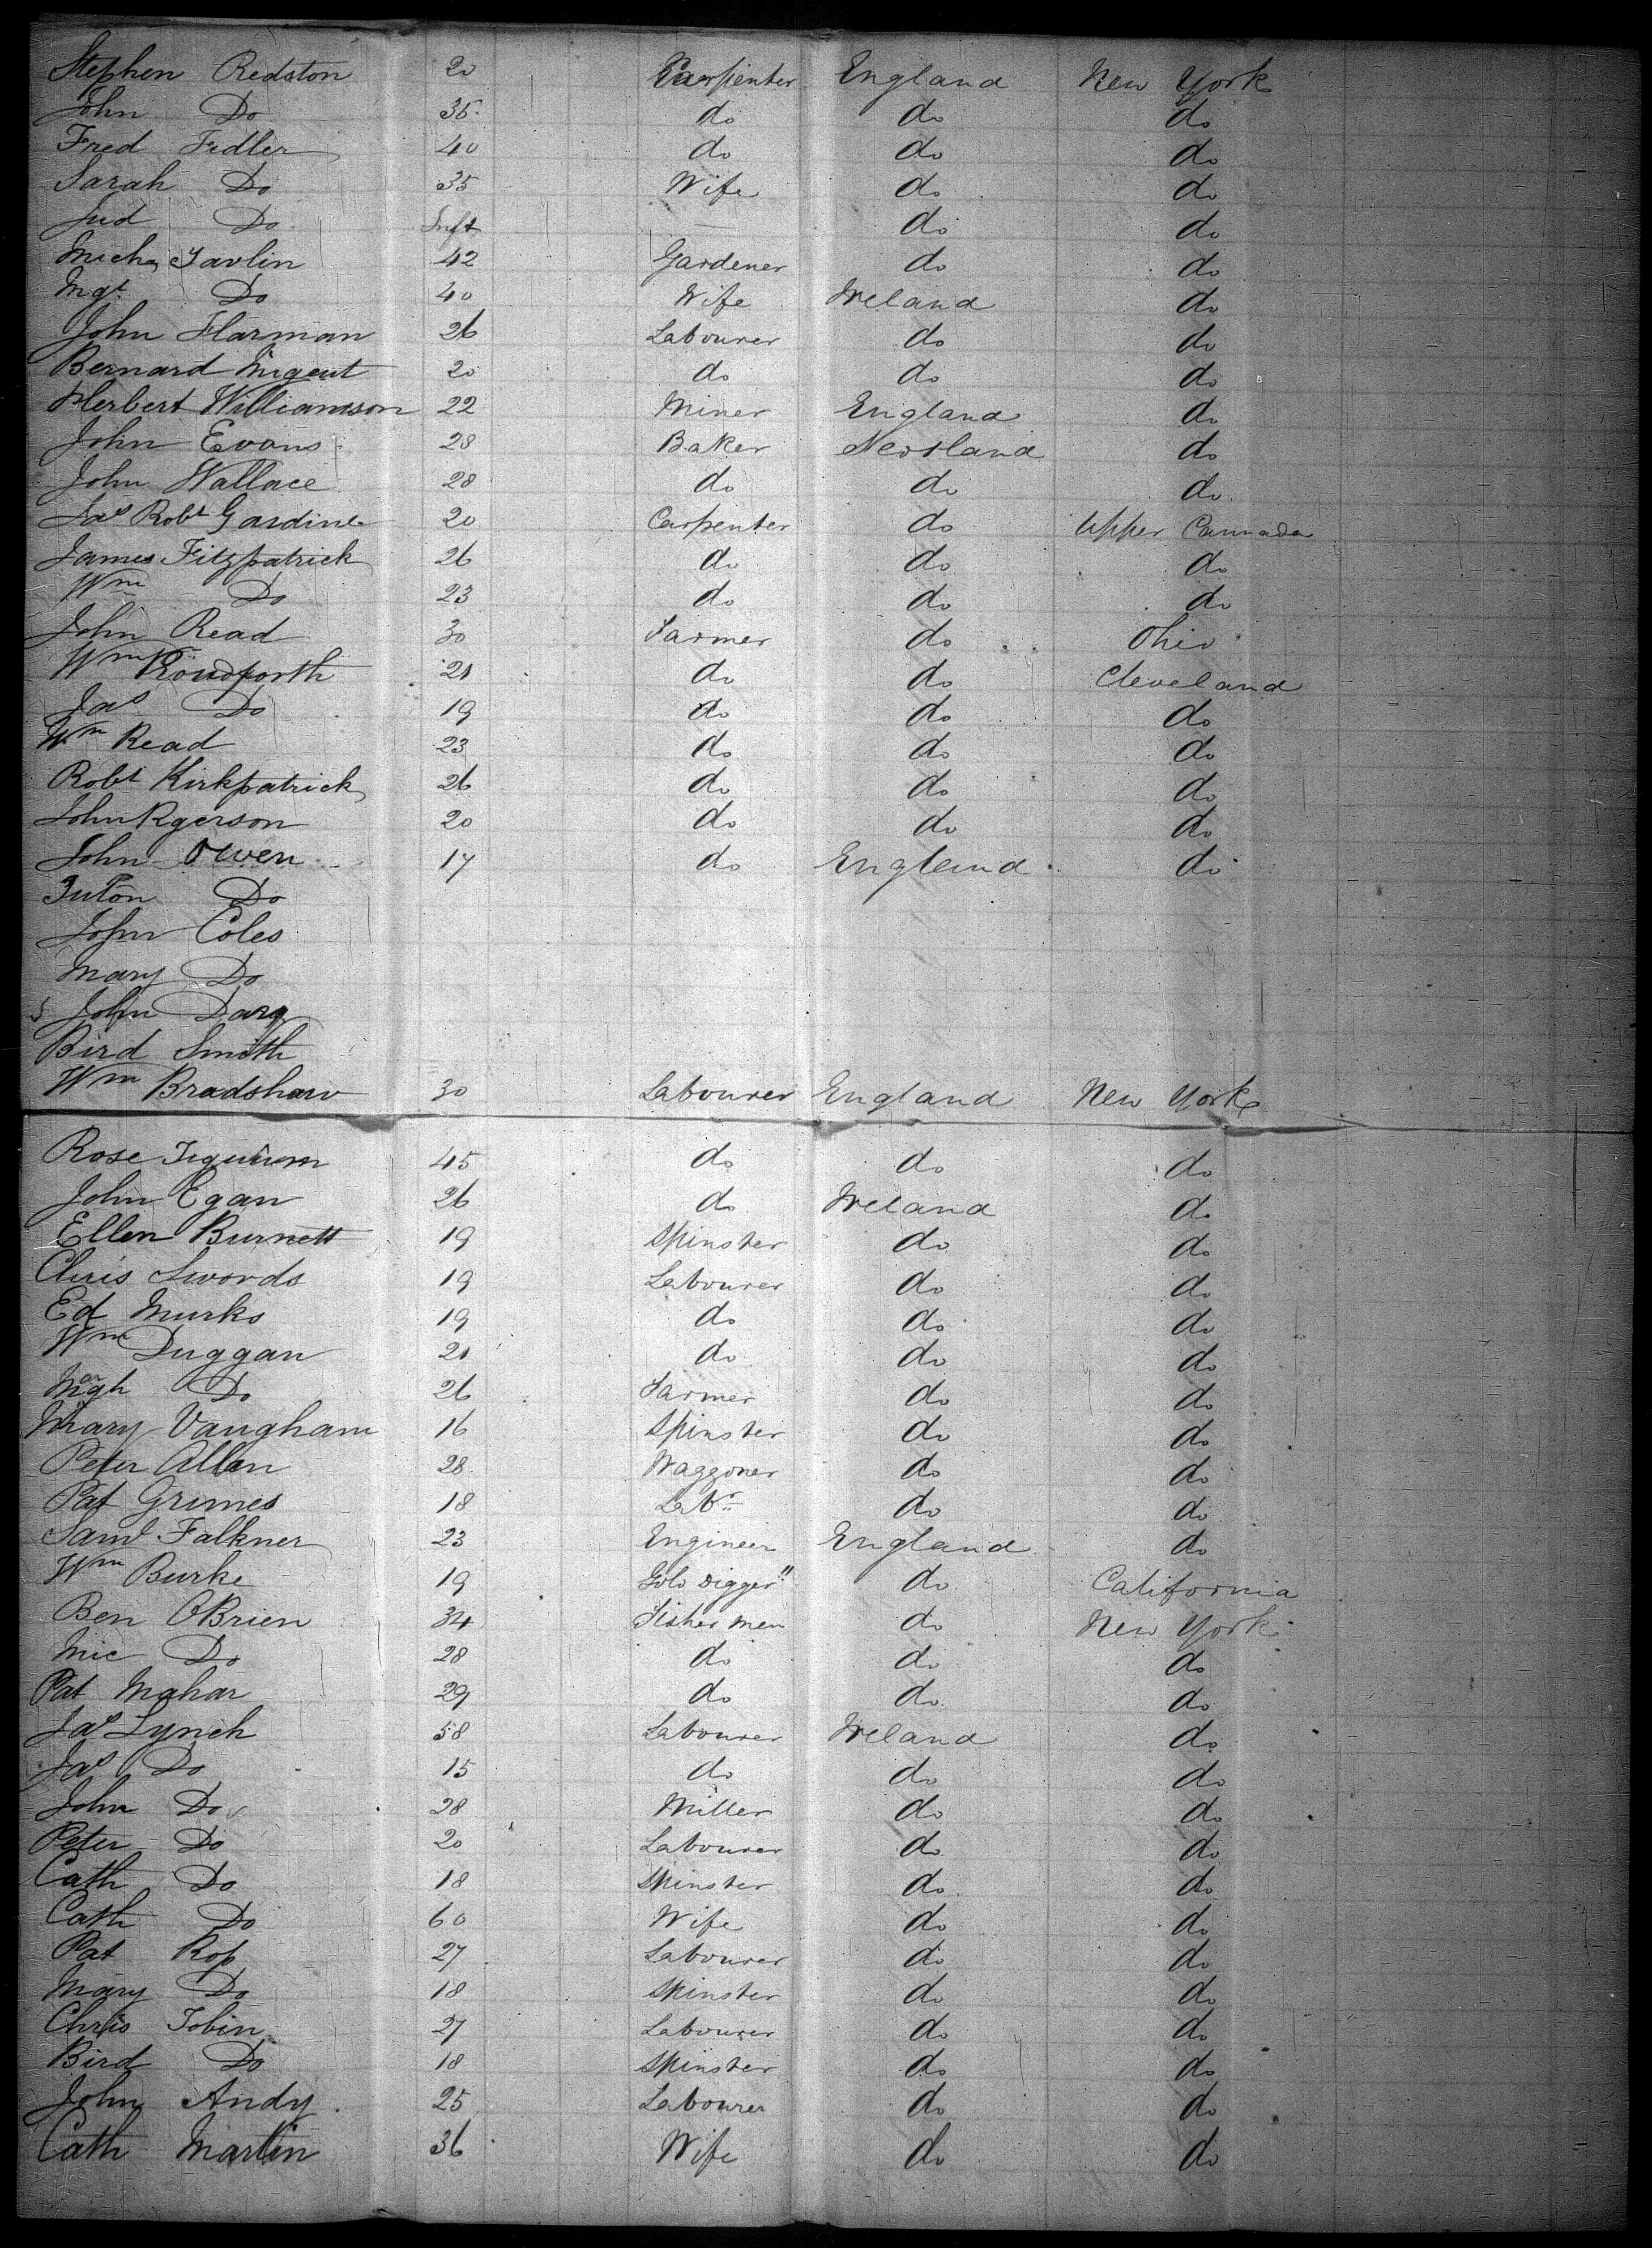 Stephen Redston 20 Carpenter England New York
John Do 35 do do do
Fred Fidler 40 do do do
Sarah Do 35 Wife do do
Do Inft do do
Gardener 42 do do
Mgt Do 40 Wife Ireland do
John Harman 26 Labourer do do
Bernard Nugent 20 do do do
Herbert Williamson 22 Miner England do
John Evans 28 Baker do
John Wallace 28 do do do
Jas Robt Gardine 20 Carpenter do Upper Cannada
James Fitzpatrick 26 do do do
Wm Do 23 do do do
John Read 30 Farmer do Ohio
Wm 21 do do Cleveland
Jas Do 19 do do do
Wm Read 23 do do do
Robt Kirkpatrick 26 do do do
John Rgerson 20 do do do
John Owen 17 do England do
Do
John Coles
Mary Do
John Darg
Bird Smith
Wm Bradshaw 30 Labourer England New York
Rose 45 do do do
John Egan 26 do Ireland do
Ellen Burnett 19 Spinster do do
Chris Swords 19 Labourer do do
Ed Murks 19 do do do
Wm Duggan 21 do do do
Do 26 Farmer do do
Mary Vaugham 16 Spinster do do
Peter Allen 28 Waggoner do do
Pat Grimes 18 Labr do do
Saml Falkner 23 Engineer England do
Wm Burke 19 Gold Digger do California
Ben OBrien 34 Fisher men do New York
Mic Do 28 do do do
Pat Mahar 29 do do do
Jas Lynch 58 Labourer Ireland do
Jas Do 15 do do do
John Do 28 Miller do do
Peter Do 20 Labourer do do
Cath Do 18 Spinster do do
Cath Do 60 Wife do do
Pat 27 Labourer do do
Mary Do 18 Spinster do do
Chris Tobin 27 Labourer do do
Bird Do 18 Spinster do do
John Andy 25 Labourer do do
Cath Martin 36 Wife do do